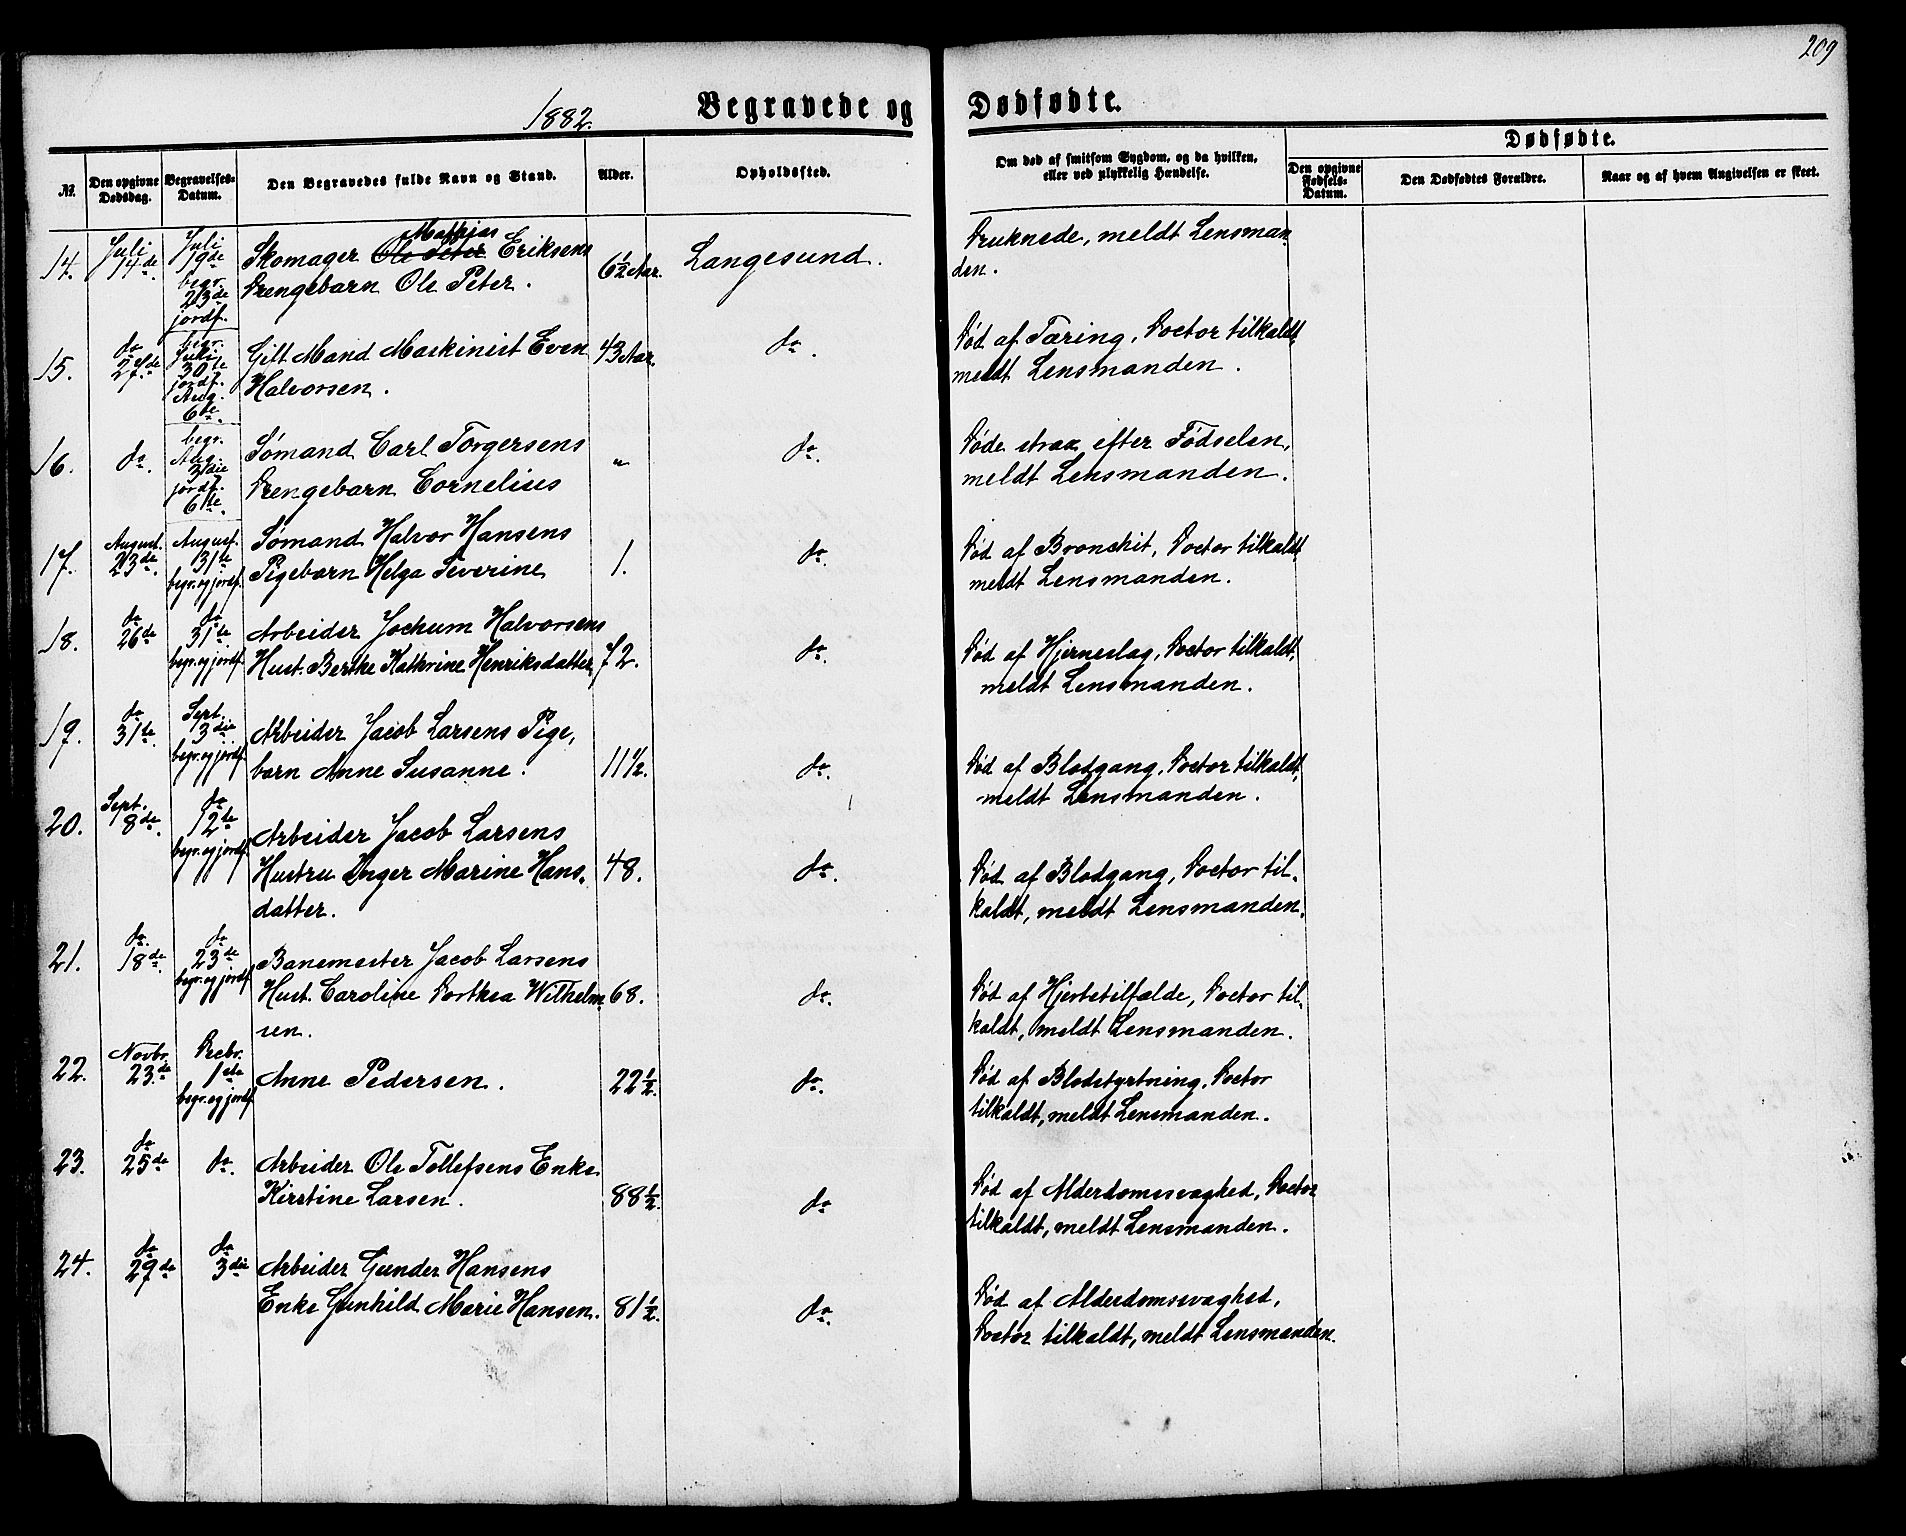 209
1882. Begravede og Dødfødte.
№. Den opgivne Dødsdag. Begravelses-Datum. Den Begravedes fulde Navn og Stand. Alder. Opholdssted. Om død af smitsom Sygdom, og da hvilken, eller ved ulykkelig Hændelse. Dødfødte. Den opgivne Fødsels-Datum. Den Dødfødtes Forældre. Naar og af hvem Angivelsen er skeet.
14. Juli 14de. Juli 19de begr. 23de jordf. Skomager Ole Peter Mathias Eriksens
Drengebarn Ole Peter. 6½ Aar. Langesund. Druknede, meldt Lensman
den.
15. do 27de. begr. Juli 30te jordf. Aug. 6te. Gift Mand Maskinist Even
Halvorsen. 43 Aar. do. Død af Tæring, Doctor tilkaldt,
meldt Lensmanden.
16. do. begr. Aug. 3die jordf. 6te. Sømand Carl Torgersens
Drengebarn Cornelius " do. Døde strax efter Fødselen,
meldt Lensmanden.
17. August. 23de. August. 31te begr. og jordf. Sømand Halvor Hansens
Pigebarn Helga Severine 1. do. Død af Bronchit, Doctor tilkaldt
meldt Lensmanden.
18. do 26de do 31te begr. og jordf. Arbeider Jochum Halvorsens
Hust. Berthe Kathrine Henriksdatter, 72. do. Død af Hjerneslag, Doctor tilkaldt,
meldt Lensmanden.
19. do 31te. Sept. 3die begr. og jordf. Arbeider Jacob Larsens Pige,
barn Anne Susanne. 11½. do. Død af Blodgang, Doctor tilkaldt,
meldt Lensmanden.
20. Sept. 8de. do 12te begr. og jordf. Arbeider Jacob Larsens
Hustru Inger Marine Hans,
datter. 48. do. Død af Blodgang, Doctor til,
kaldt, meldt Lensmanden.
21. do. 18de. do 23de begr. og jordf. Banemester Jacob Larsens
Hust. Caroline Dorthea Wilhelm
sen. 68. do. Død af Hjertetilfælde, Doctor til,
kaldt, meldt Lensmanden.
22. Novbr. 23de. Decbr. 1ste begr. og jordf. Anne Pedersen. 22½. do. Død af Blodstyrtning, Doctor
tilkaldt, meldt Lensmanden.
23. do 25de do. Arbeider Ole Tollefsens Enke
Kirstine Larsen. 88½. do Død af Alderdomssvaghed, Doctor
tilkaldt, meldt Lensmanden.
24. do 29de do 3die Arbeider Gunder Hansens
Enke Gunhild Marie Hansen. 81½. do. Død af Alderdomssvaghed,
Doctor tilkaldt, meldt Lensmanden.